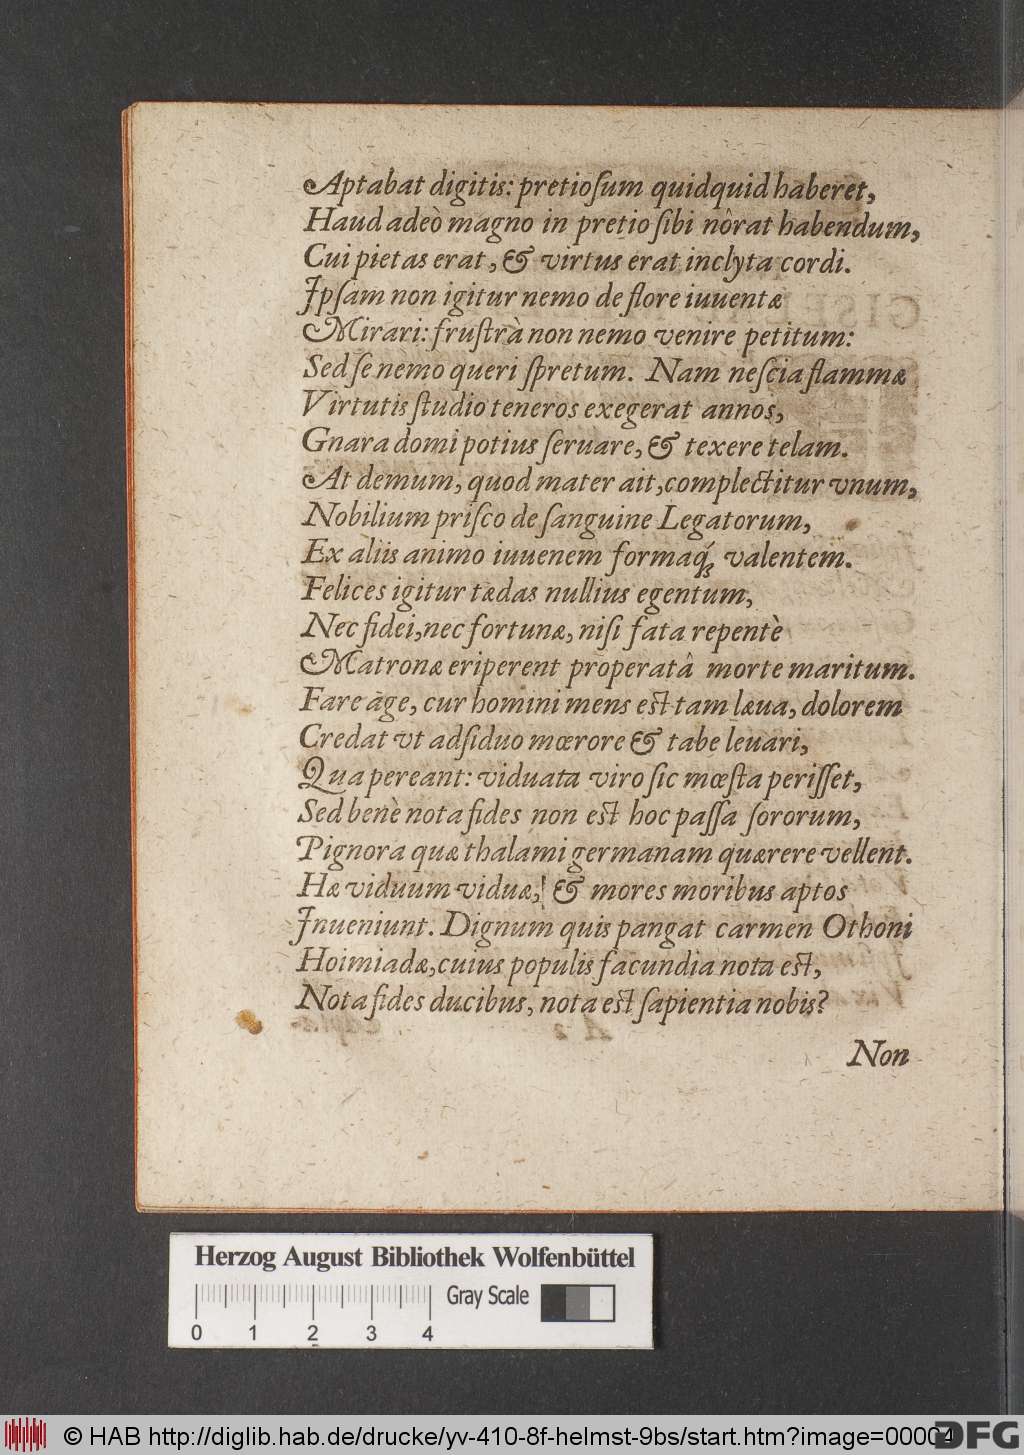 Aptabat digitis: pretioſum quidquid haberet,
Haud adeò magno in pretio ſibi nôrat habendum,
Cui pietas erat, & virtus erat inclyta cordi.
Ipſam non igitur nemo de flore iuuentæ
Mirari: fruſtrà non nemo venire petitum:
Sed ſe nemo queri ſpretum. Nam neſcia flammæ
Virtutis ſtudio teneros exegerat annos,
Gnara domi potius ſeruare, & texere telam.
At demum, quod mater ait, complectitur vnum,
Nobilium priſco de ſanguine Legatorum,
Ex aliis animo iuuenem formaq́; valentem.
Felices igitur tædas nullius egentum,
Nec fidei, nec fortunæ, niſi fata repentè
Matronæ eriperent properatâ morte maritum.
Fare age, cur homini mens eſt tam læua, dolorem
Credat vt adſiduo mœrore & tabe leuari,
Qua pereant: viduata viro ſic mœſta periſſet,
Sed benè nota fides non eſt hoc paſſa ſororum,
Pignora quæ thalami germanam quærere vellent.
Hæ viduum viduæ, & mores moribus aptos
Inueniunt. Dignum quis pangat carmen Othoni
Hoimiadæ, cuius populis facundia nota eſt,
Nota fides ducibus, nota eſt ſapientia nobis?
Non
Herzog August Bibliothek Wolfenbüttel
Gray Scale
0 1 2 3 4
© HAB http://diglib.hab.de/drucke/yv-410-8f-helmst-9bs/start.htm?image=00004
DFG